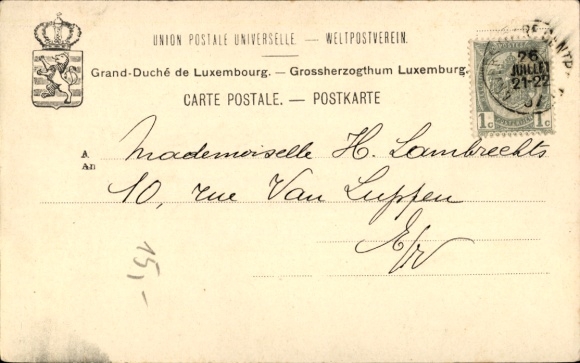 UNION POSTALE UNIVERSELLE. — WELTPOSTVEREIN.
Grand-Duché de Luxembourg. — Grossherzogthum Luxemburg.
CARTE POSTALE. — POSTKARTE
26
JUILLET
21-22
07
1c 1c
A
An
Mademoiselle H. Lambrechts
10, rue Van Luppen
E/V
15,-